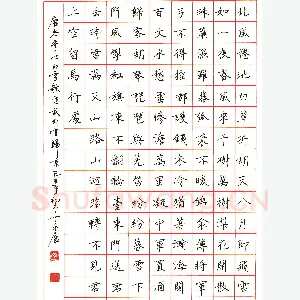 北風捲地白草折胡天八月即飛雪忽
如一夜春風來千樹萬樹梨花開散入
珠簾濕羅幕狐裘不暖錦衾薄將軍角
弓不得控都護鐵衣冷難著瀚海闌干
百丈冰愁雲慘淡萬里凝中軍置酒飲
歸客胡琴琵琶與羌笛紛紛暮雪下轅
門風掣紅旗凍不翻輪臺東門送君去
去時雪滿天山路山迴路轉不見君雪
上空留馬行處
唐岑參白雪歌送武判官歸京